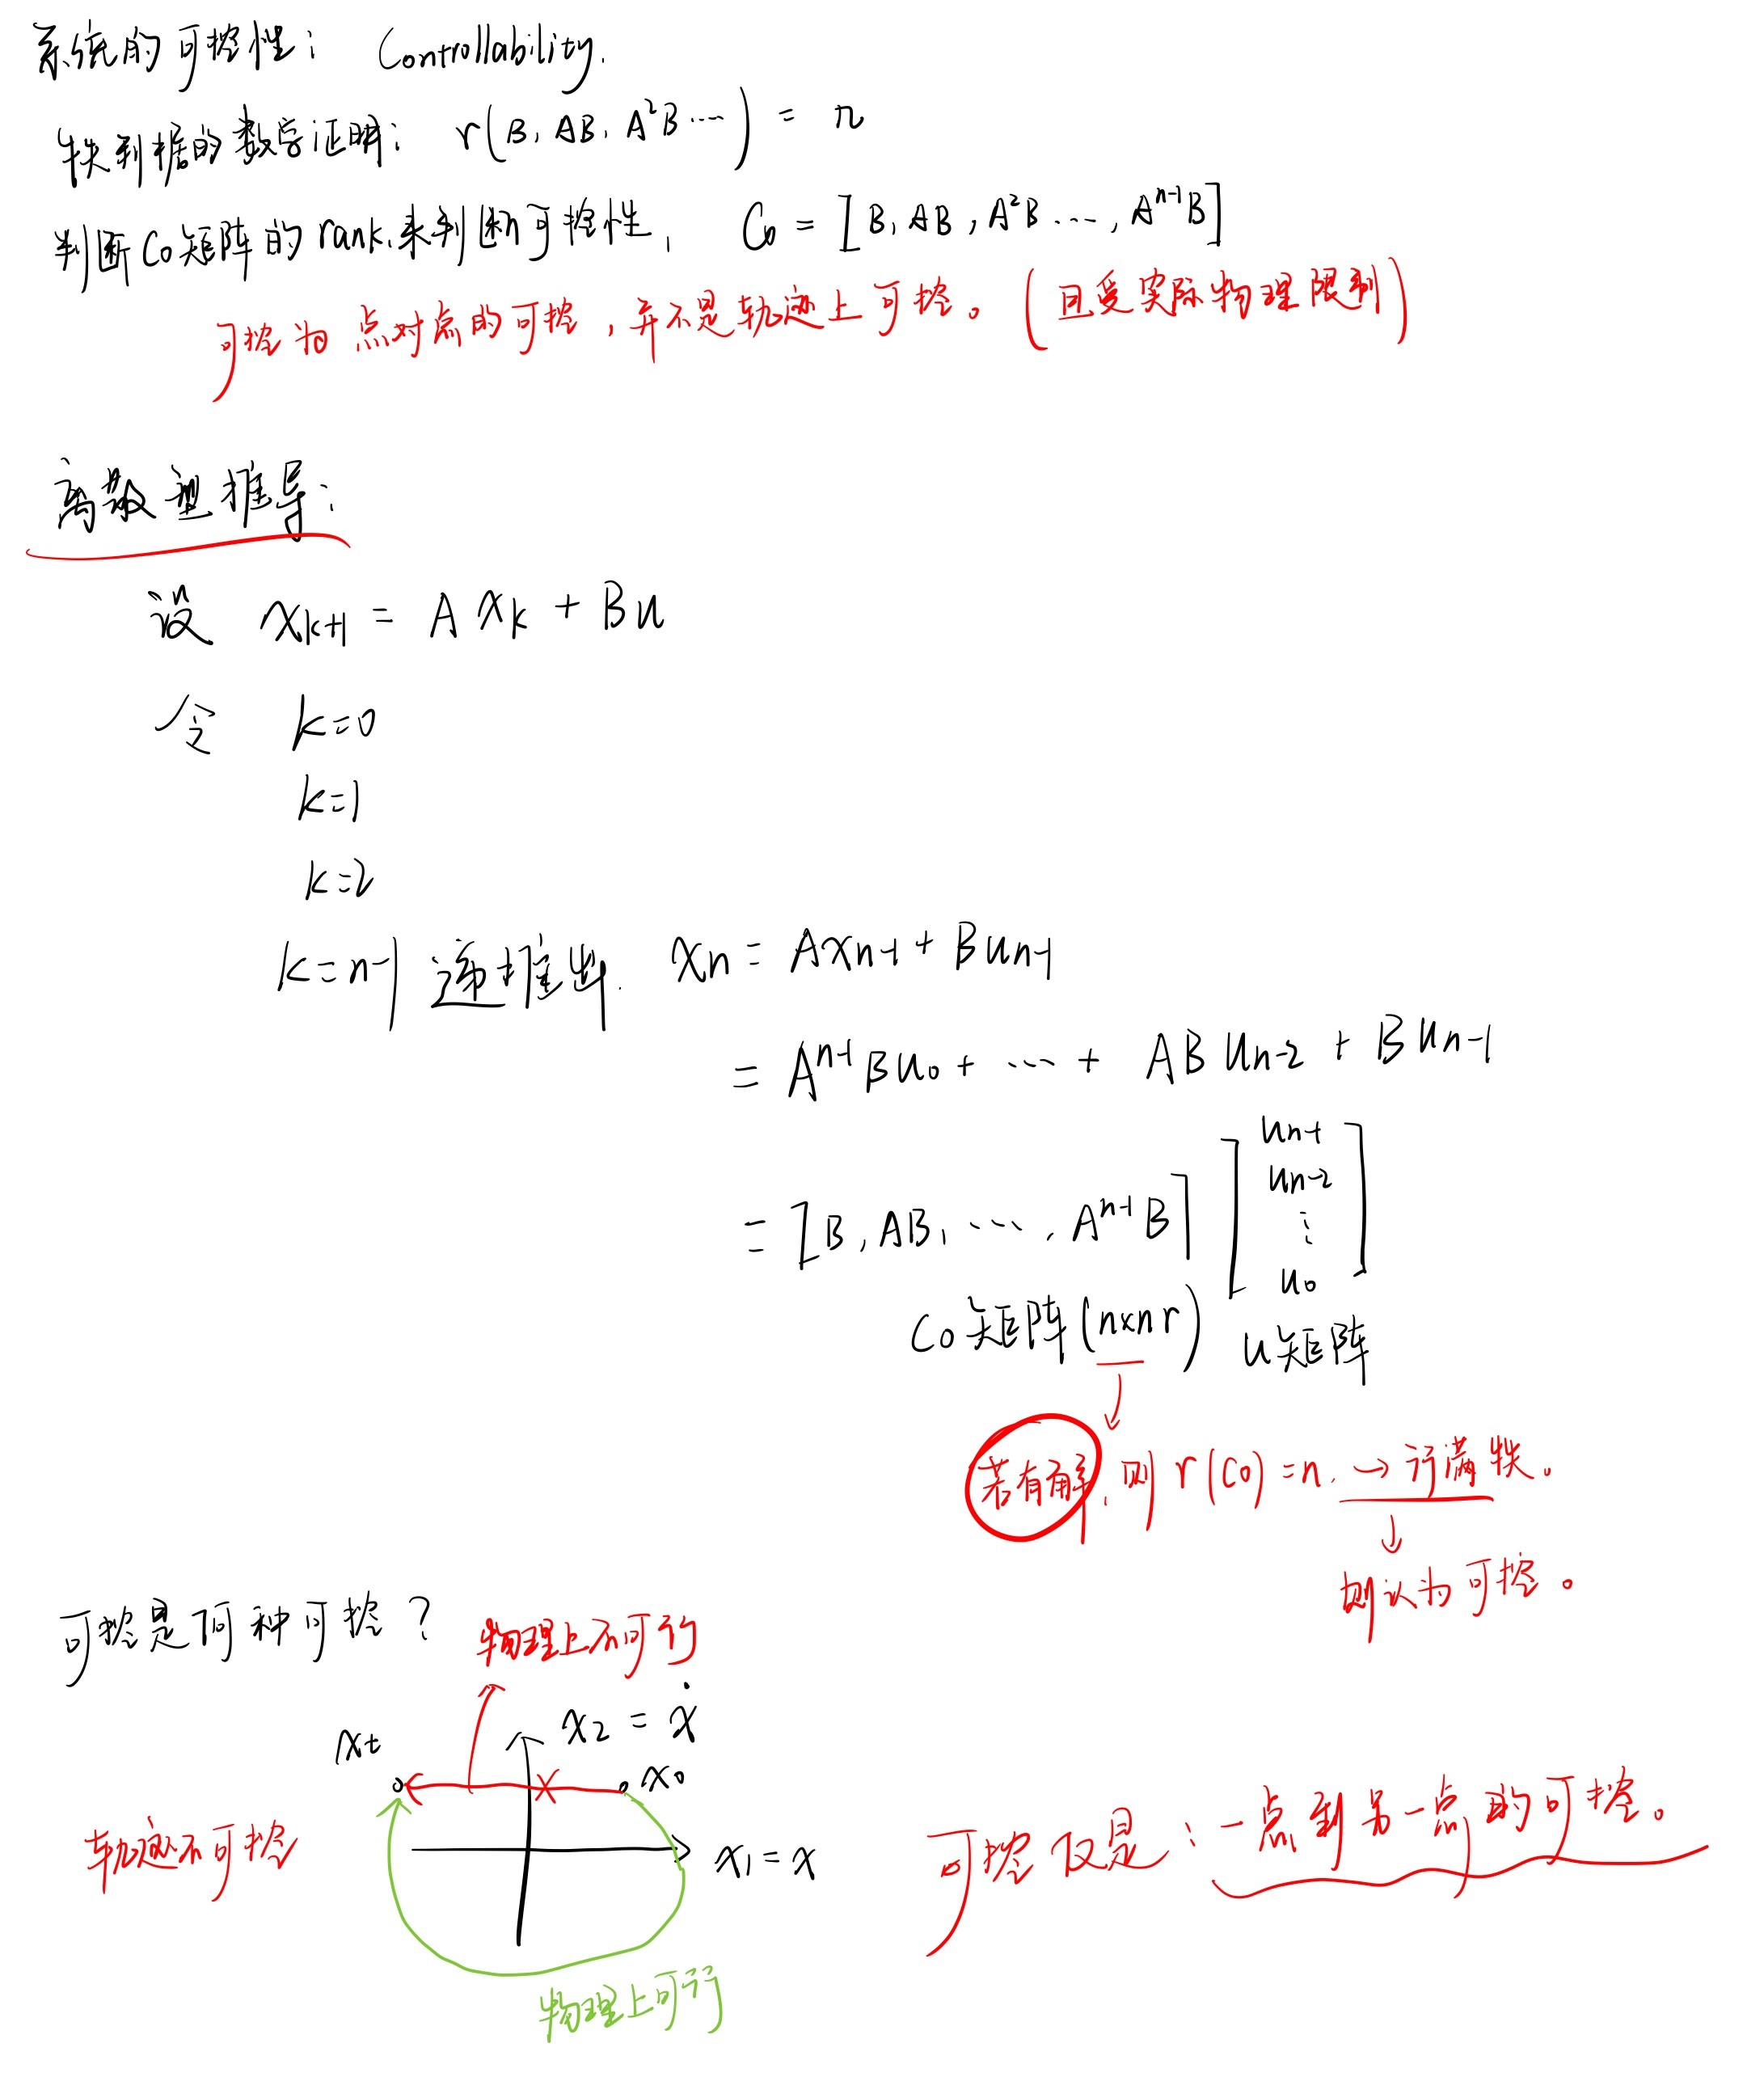 系统的可控性： Controllability.
秩判据的数学证明： r(B, AB, A²B ⋯) = n
判断Co矩阵的rank,来判断可控性, Co = [B, AB, A²B ⋯, Aⁿ⁻¹B]
可控为 点对点的可控，并不是轨迹上可控。(且受实际物理限制)
离散型推导：
设 xₖ₊₁ = A xₖ + Bu
令 k=0
k=1
k=2
k=n-1 递推出. xₙ = Axₙ₋₁ + Buₙ₋₁
= Aⁿ⁻¹Bu₀ + ⋯ + ABuₙ₋₂ + Buₙ₋₁
= [B, AB, ⋯, Aⁿ⁻¹B] [uₙ₋₁ uₙ₋₂ ⋮ u₀]
Co矩阵(n×nr) u矩阵
若有解, 则 r(Co) = n. → 行满秩。
则认为可控。
可控是何种可控？
物理上不可行
x₂ = ẋ
xt
x₀
轨迹不可控
x₁ = x
可控仅是：一点到另一点的可控。
物理上可行